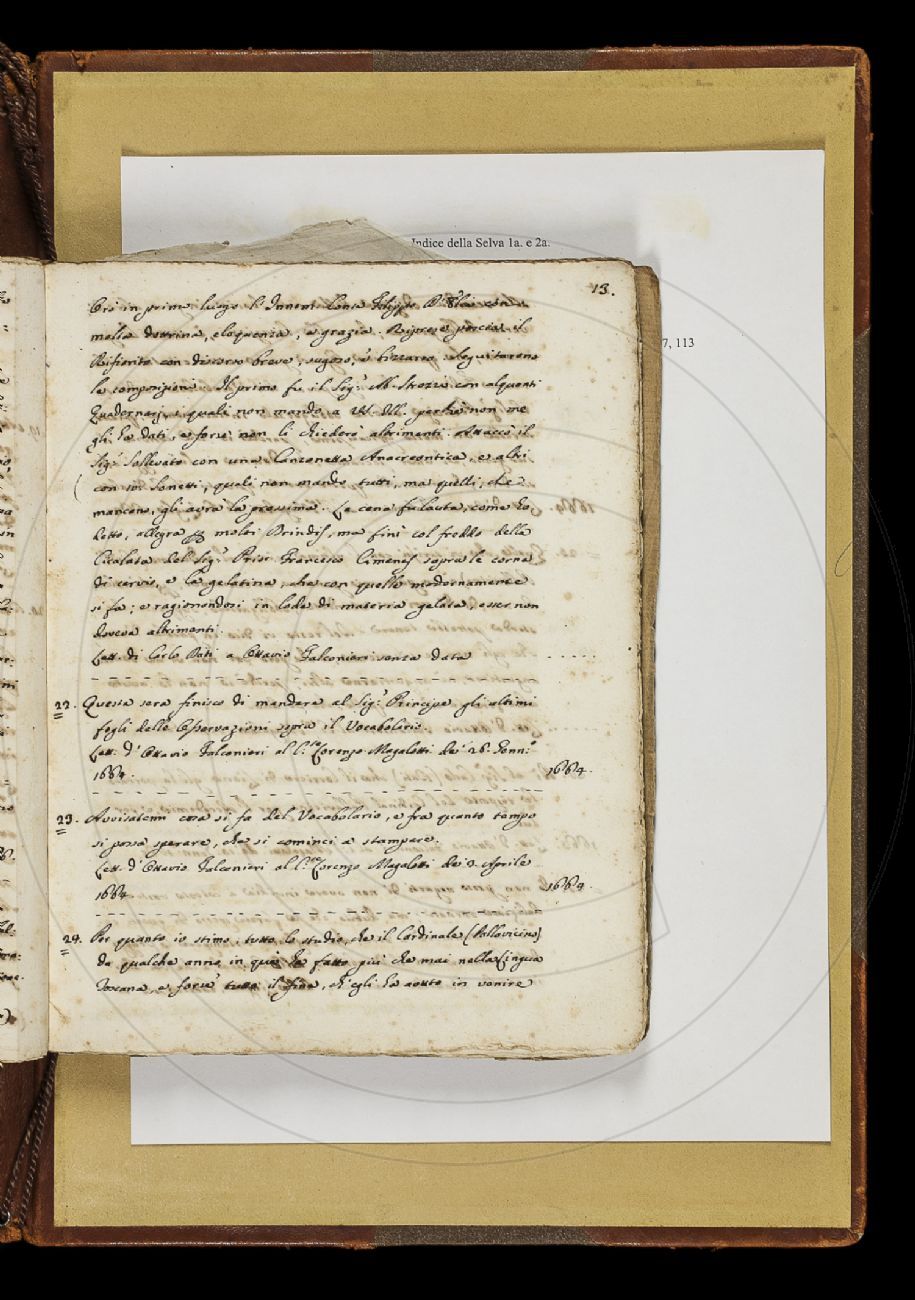 Indice della Selva 1a. e 2a.
7, 113
13.
Orò in primo luogo l'Innom. Conte Filippo
molta dottrina, eloquenza, e grazia. Riprese poscia il
Rifiorito con discorso breve, sugoso, e bizzarro. Seguitarono
le composizioni. Il primo fu il Sig.r Ab. Strozzi con alquanti
Quadernarj, i quali non mando a VS. Ill. perchè non me
gli ha dati, e forse non li chiederò altrimenti. Attaccò il
Sig.r Sollevato con una Canzonetta Anacreontica, e altri
con Sonetti, quali non mando tutti, ma quelli, che
mancano, gli avrà la prossima. La cena fu lauta, come ho
detto, allegra molti Brindisi, ma finì col freddo della
Cicalata del Sig.r Prior Francesco Cimenes sopra le corna
di cervio, e la gelatina, che con quelle modernamente
si fa; e ragionandosi in lode di materia gelata, esser non
doveva altrimenti.
Lett. di Carlo Dati a Ottavio Falconieri senza data . . . . . .
22. Questa sera finisco di mandare al Sig.r Principe gli ultimi
fogli delle Osservazioni sopra il Vocabolario.
Lett. d'Ottavio Falconieri al C.te Lorenzo Magalotti de' 26. Genn.o
1664. 1664.
23. Avvisatemi cosa si fa del Vocabolario, e fra quanto tempo
si possa sperare, che si cominci a stampare.
Lett. d'Ottavio Falconieri al C.te Lorenzo Magalotti de' 2. Aprile
1664. 1664.
24. Per quanto io stimo, tutto lo studio, che il Cardinale (Pallavicino)
da qualche anno in quà ha fatto più che mai nella Lingua
Toscana, e forse tutto il fine, ch'egli ha avuto in venire